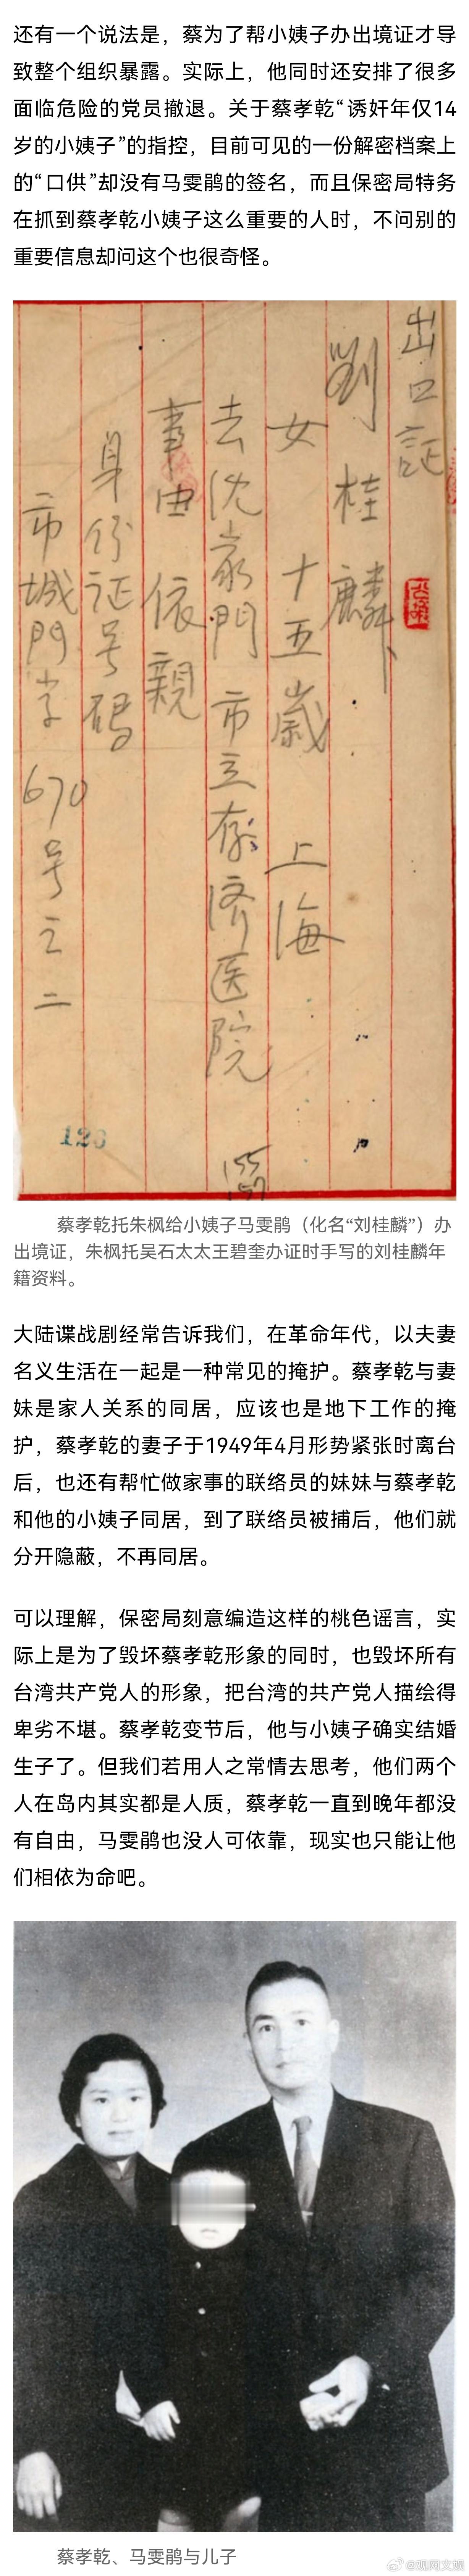 还有一个说法是，蔡为了帮小姨子办出境证才导
致整个组织暴露。实际上，他同时还安排了很多
面临危险的党员撤退。关于蔡孝乾“诱奸年仅14
岁的小姨子”的指控，目前可见的一份解密档案上
的“口供”却没有马雯鹃的签名，而且保密局特务
在抓到蔡孝乾小姨子这么重要的人时，不问别的
重要信息却问这个也很奇怪。
出口証
劉桂麟
女 十五歲 上海
去沈家門 市立存济医院
事由 依親
身份证号码
市城門字 670号之二
126
蔡孝乾托朱枫给小姨子马雯鹃（化名“刘桂麟”）办
出境证，朱枫托吴石太太王碧奎办证时手写的刘桂麟年
籍资料。
大陆谍战剧经常告诉我们，在革命年代，以夫妻
名义生活在一起是一种常见的掩护。蔡孝乾与妻
妹是家人关系的同居，应该也是地下工作的掩
护，蔡孝乾的妻子于1949年4月形势紧张时离台
后，也还有帮忙做家事的联络员的妹妹与蔡孝乾
和他的小姨子同居，到了联络员被捕后，他们就
分开隐蔽，不再同居。
可以理解，保密局刻意编造这样的桃色谣言，实
际上是为了毁坏蔡孝乾形象的同时，也毁坏所有
台湾共产党人的形象，把台湾的共产党人描绘得
卑劣不堪。蔡孝乾变节后，他与小姨子确实结婚
生子了。但我们若用人之常情去思考，他们两个
人在岛内其实都是人质，蔡孝乾一直到晚年都没
有自由，马雯鹃也没人可依靠，现实也只能让他
们相依为命吧。
蔡孝乾、马雯鹃与儿子
@观网文娱